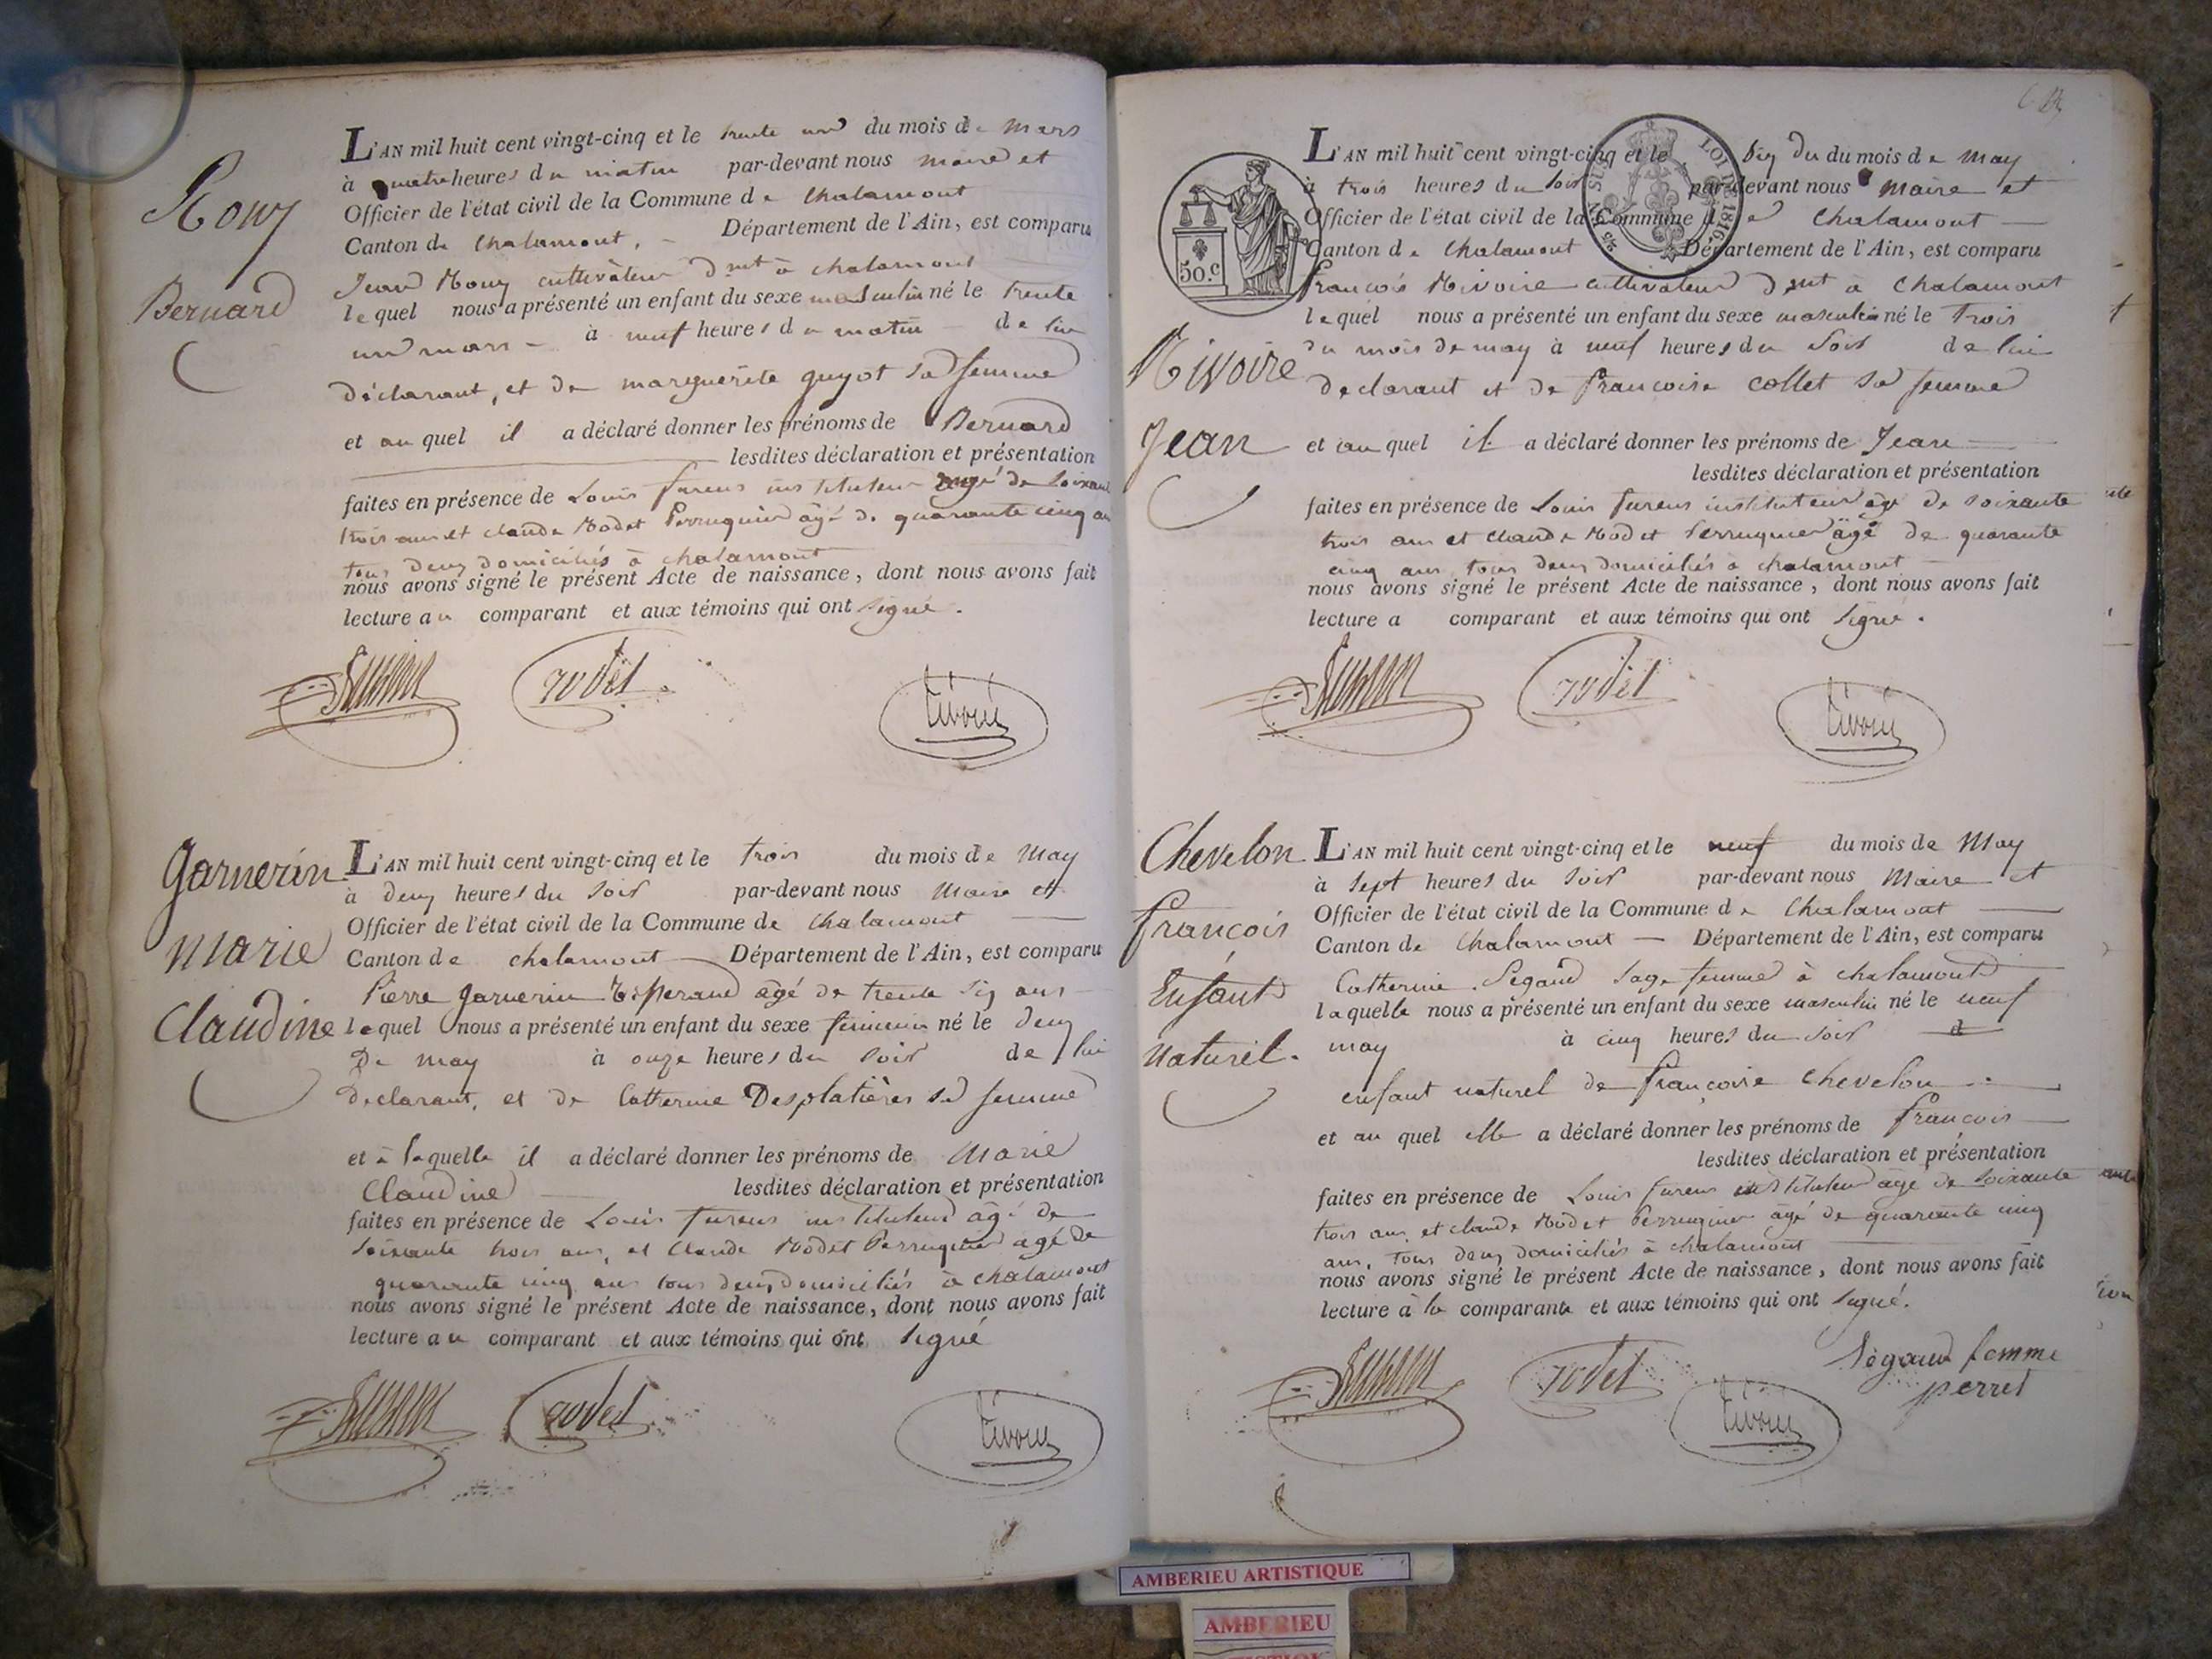 Bernard
L'AN mil huit cent vingt-cinq et le trente un du mois de Mars
à quatre heures du matin par-devant nous maire et
Officier de l'état civil de la Commune de Chalamont
Canton de Chalamont, Département de l'Ain, est comparu
Jean Rouy cultivateur à chalamont
lequel nous a présenté un enfant du sexe masculin né le trente
un mars à neuf heures du matin de lui
déclarant, et de marguerite guyot sa femme
et au quel il a déclaré donner les prénoms de Bernard
lesdites déclaration et présentation
faites en présence de Louis instituteur agé de Soixante
trois ans et claude Rodet Perruquier âgé de quarante cinq ans
tous deux domiciliés à chalamont
nous avons signé le présent Acte de naissance, dont nous avons fait
lecture au comparant et aux témoins qui ont signé.
rodet
Garnerin
Marie
Claudine
L'AN mil huit cent vingt-cinq et le trois du mois de May
à deux heures du soir par-devant nous Maire et
Officier de l'état civil de la Commune de Chalamont
Canton de chalamont Département de l'Ain, est comparu
Pierre Garnerin âgé de trente six ans
lequel nous a présenté un enfant du sexe feminin né le deux
De may à onze heures du soir de lui
Declarant, et de Catherine Desplatières sa femme
et à laquelle il a déclaré donner les prénoms de Marie
Claudine lesdites déclaration et présentation
faites en présence de Louis instituteur âgé de
soixante trois ans, et Claude Rodet Perruquier agé de
quarante cinq ans tous deux domiciliés à chalamont
nous avons signé le présent Acte de naissance, dont nous avons fait
lecture au comparant et aux témoins qui ont signé
rodet
LOI DE 1816.
50.c
Rivoire
Jean
L'AN mil huit cent vingt-cinq et le six du du mois de may
à trois heures du soir par-devant nous maire et
Officier de l'état civil de la Commune de Chalamont
Canton de Chalamont Département de l'Ain, est comparu
françois Rivoire cultivateur à Chalamont
lequel nous a présenté un enfant du sexe masculin né le trois
du mois de may à neuf heures du soir de lui
declarant et de francoise collet sa femme
et au quel il a déclaré donner les prénoms de Jean
lesdites déclaration et présentation
faites en présence de Louis instituteur âgé de soixante
trois ans et claude Rodet Perruquier âgé de quarante
cinq ans tous deux domiciliés à chalamont
nous avons signé le présent Acte de naissance, dont nous avons fait
lecture a comparant et aux témoins qui ont signé.
rodet
Chevelon
françois
Enfant
Naturel.
L'AN mil huit cent vingt-cinq et le neuf du mois de May
à sept heures du soir par-devant nous Maire et
Officier de l'état civil de la Commune de Chalamont
Canton de Chalamont Département de l'Ain, est comparu
Catherine Segaud sage femme à chalamont
laquelle nous a présenté un enfant du sexe masculin né le neuf
may à cinq heures du soir
enfant naturel de françoise Chevelon
et au quel elle a déclaré donner les prénoms de françois
lesdites déclaration et présentation
faites en présence de Louis instituteur âgé de soixante
trois ans et claude Rodet Perruquier âgé de quarante cinq
ans, tous deux domiciliés à chalamont
nous avons signé le présent Acte de naissance, dont nous avons fait
lecture à la comparante et aux témoins qui ont signé.
rodet
Segaud femme
perret
AMBERIEU ARTISTIQUE
AMBERIEU